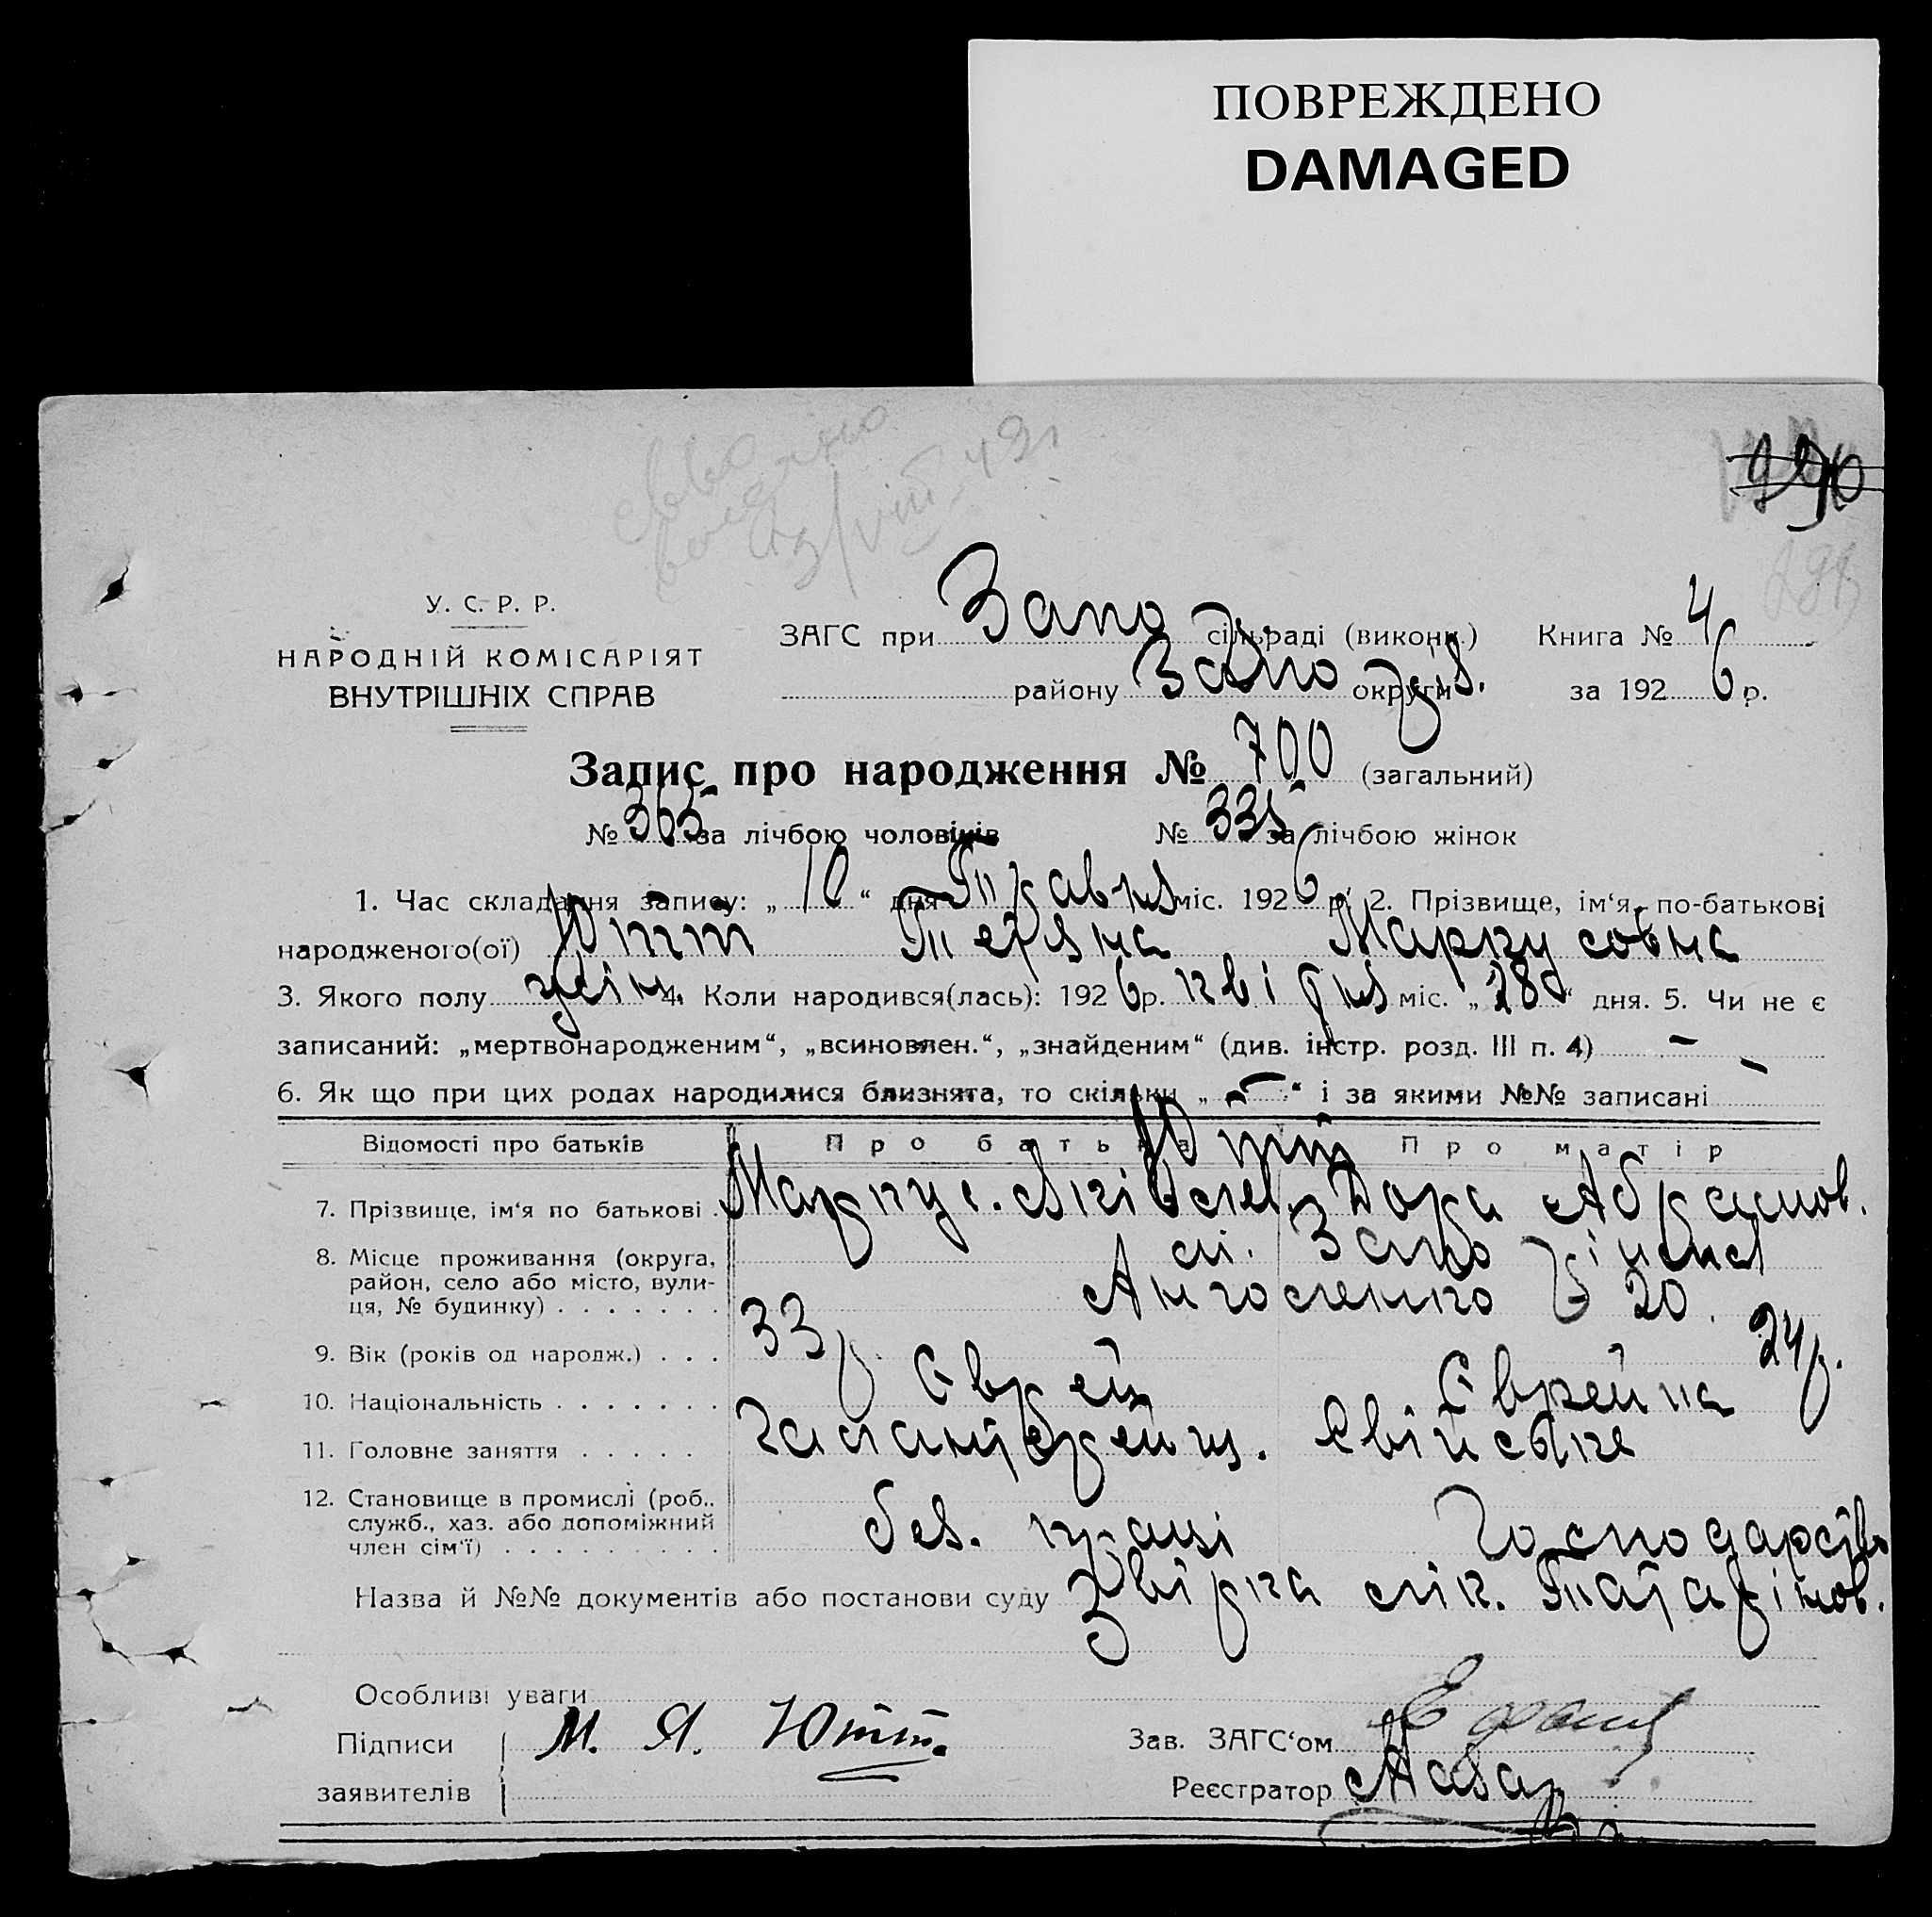 ПОВРЕЖДЕНО
DAMAGED
У. С. Р. Р.
НАРОДНІЙ КОМІСАРІЯТ
ВНУТРІШНІХ СПРАВ
ЗАГС при Запо сільраді (викони.) Книга № 4
району Запо округи за 1926 р.
Запис про народження № 700 (загальний)
№ 365 за лічбою чоловіків № 335 за лічбою жінок
1. Час складання запису: „10“ дня Травня міс. 1926 р. 2. Прізвище, ім'я, по-батькові
народженого(ої) Ютт Маркусовна
3. Якого полу жін. 4. Коли народився(лась): 1926 р. квітня міс. „28“ дня. 5. Чи не є
записаний: „мертвонародженим“, „всиновлен.“, „знайденим“ (див. інстр. розд. III п. 4) —
6. Як що при цих родах народилися близнята, то скільки „—“ і за якими №№ записані —
Відомості про батьків Про батька Про матір
Ютт
7. Прізвище, ім'я по батькові Маркус. Дора Абрамов.
8. Місце проживання (округа, район, село або місто, вулиця, № будинку) м. Запо
20.
9. Вік (років од народж.) 33 р. 24 р.
10. Національність Єврей Єврейка
11. Головне заняття Свійське
12. Становище в промислі (роб., служб., хаз. або допоміжний член сім'ї) без. праці Господарство
Назва й №№ документів або постанови суду Звірка лік.
Особливі уваги
Підписи заявителів М. Я. Ютт.
Зав. ЗАГС'ом
Реєстратор